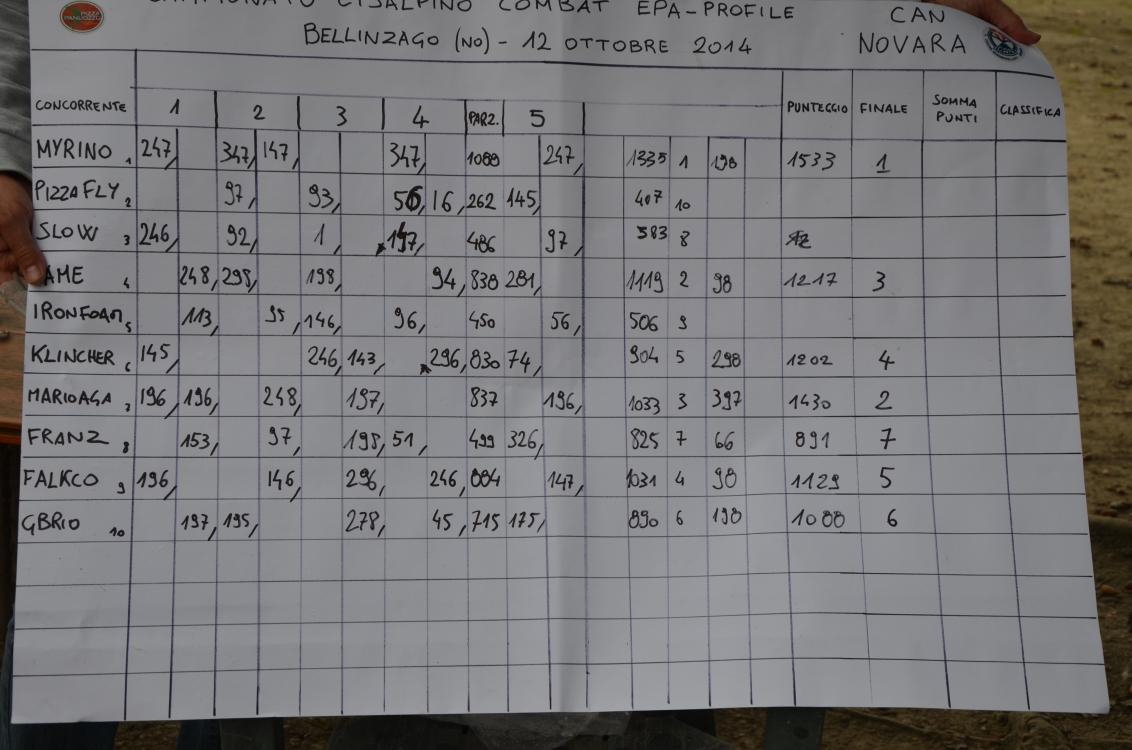 CAMPIONATO CISALPINO COMBAT EPA-PROFILE CAN
BELLINZAGO (NO) - 12 OTTOBRE 2014 NOVARA
CONCORRENTE 1 2 3 4 PARZ. 5 PUNTEGGIO FINALE SOMMA PUNTI CLASSIFICA
MYRINO 1 247, 347, 147, 347, 1088 247, 1335 1 198 1533 1
PIZZAFLY 2 97, 93, 56, 16, 262 145, 407 10
SLOW 3 246, 92, 1, 147, 486 97, 583 8
AME 4 248, 298, 198, 94, 838 281, 1119 2 98 1217 3
IRONFOAM 5 113, 95, 146, 96, 450 56, 506 9
KLINCHER 6 145, 246, 143, 296, 830 74, 904 5 298 1202 4
MARIOAGA 7 196, 196, 248, 197, 837 196, 1033 3 397 1430 2
FRANZ 8 153, 97, 198, 51, 499 326, 825 7 66 891 7
FALKCO 9 196, 146, 296, 246, 884 147, 1031 4 98 1129 5
GBRIO 10 197, 195, 278, 45, 715 175, 890 6 198 1088 6